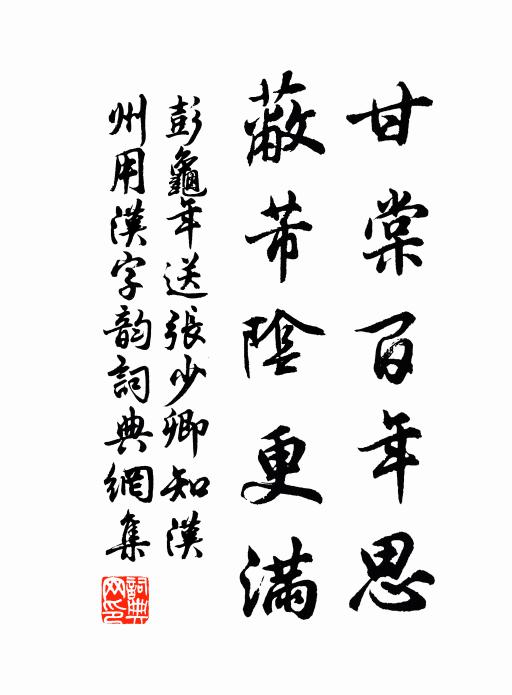 甘棠百年思
蔽芾陰更滿
彭龜年送張少卿知漢
州用漢字韵詞典網集
詞典
网印